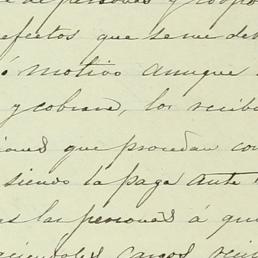 de personas y corpo
efectos que se me deb
ó motivo aunque
y cobrare, los recibo
iones que procedan con
siendo la paga ante
as las personas á qui
ciendoles cargos, reci